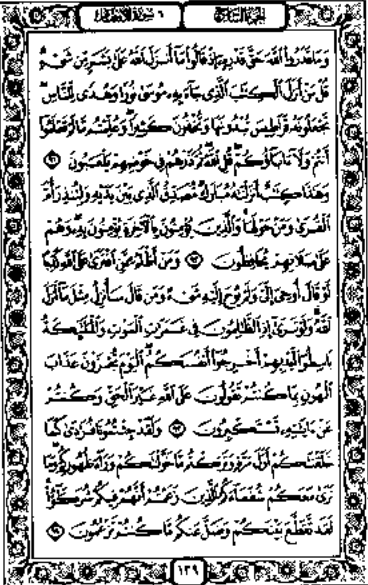 الجزء السابع
٦ سورة الأنعام
وَمَا قَدَرُوا اللَّهَ حَقَّ قَدْرِهِ إِذْ قَالُوا مَا أَنزَلَ اللَّهُ عَلَىٰ بَشَرٍ مِّن شَيْءٍ
قُلْ مَنْ أَنزَلَ الْكِتَٰبَ الَّذِي جَاءَ بِهِ مُوسَىٰ نُورًا وَهُدًى لِّلنَّاسِ
تَجْعَلُونَهُ قَرَاطِيسَ تُبْدُونَهَا وَتُخْفُونَ كَثِيرًا وَعُلِّمْتُم مَّا لَمْ تَعْلَمُوا
أَنتُمْ وَلَا ءَابَاؤُكُمْ قُلِ اللَّهُ ثُمَّ ذَرْهُمْ فِي خَوْضِهِمْ يَلْعَبُونَ ٩١
وَهَٰذَا كِتَٰبٌ أَنزَلْنَٰهُ مُبَارَكٌ مُّصَدِّقُ الَّذِي بَيْنَ يَدَيْهِ وَلِتُنذِرَ أُمَّ
الْقُرَىٰ وَمَنْ حَوْلَهَا وَالَّذِينَ يُؤْمِنُونَ بِالْءَاخِرَةِ يُؤْمِنُونَ بِهِ وَهُمْ
عَلَىٰ صَلَاتِهِمْ يُحَافِظُونَ ٩٢ وَمَنْ أَظْلَمُ مِمَّنِ افْتَرَىٰ عَلَى اللَّهِ كَذِبًا
أَوْ قَالَ أُوحِيَ إِلَيَّ وَلَمْ يُوحَ إِلَيْهِ شَيْءٌ وَمَن قَالَ سَأُنزِلُ مِثْلَ مَا أَنزَلَ
اللَّهُ وَلَوْ تَرَىٰ إِذِ الظَّٰلِمُونَ فِي غَمَرَٰتِ الْمَوْتِ وَالْمَلَٰئِكَةُ
بَاسِطُوا أَيْدِيهِمْ أَخْرِجُوا أَنفُسَكُمُ الْيَوْمَ تُجْزَوْنَ عَذَابَ
الْهُونِ بِمَا كُنتُمْ تَقُولُونَ عَلَى اللَّهِ غَيْرَ الْحَقِّ وَكُنتُمْ
عَنْ ءَايَٰتِهِ تَسْتَكْبِرُونَ ٩٣ وَلَقَدْ جِئْتُمُونَا فُرَٰدَىٰ كَمَا
خَلَقْنَٰكُمْ أَوَّلَ مَرَّةٍ وَتَرَكْتُم مَّا خَوَّلْنَٰكُمْ وَرَاءَ ظُهُورِكُمْ وَمَا
نَرَىٰ مَعَكُمْ شُفَعَاءَكُمُ الَّذِينَ زَعَمْتُمْ أَنَّهُمْ فِيكُمْ شُرَكَٰؤُا
لَقَد تَّقَطَّعَ بَيْنَكُمْ وَضَلَّ عَنكُم مَّا كُنتُمْ تَزْعُمُونَ ٩٤
١٣٩